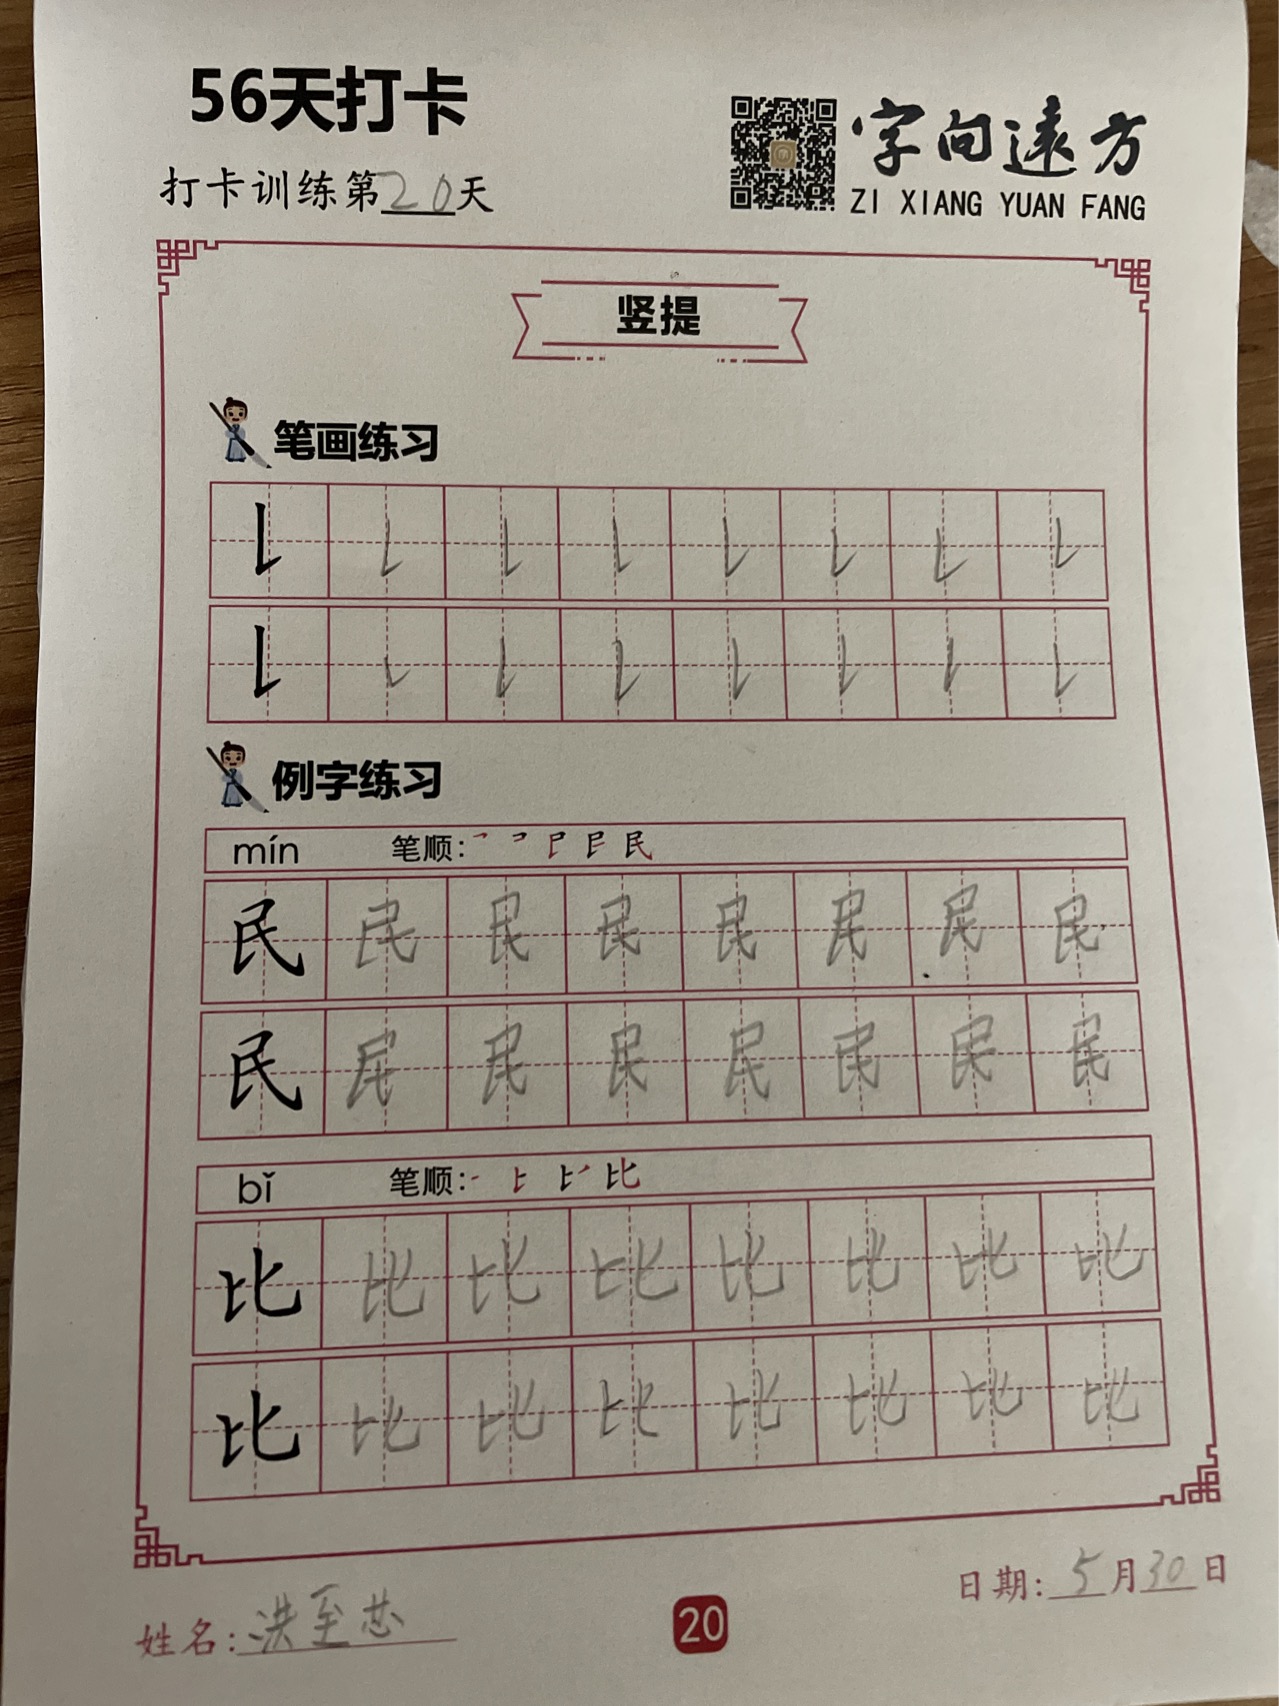 56天打卡
字向遠方
打卡训练第20天
ZI XIANG YUAN FANG
竖提
笔画练习
例字练习
mín 笔顺:
民 民 民 民 民 民 民 民
民 民 民 民 民 民 民 民
bǐ 笔顺: 比
比 比 比 比 比 比 比 比
比 比 比 比 比 比 比 比
日期:5月30日
姓名:洪至芯
20